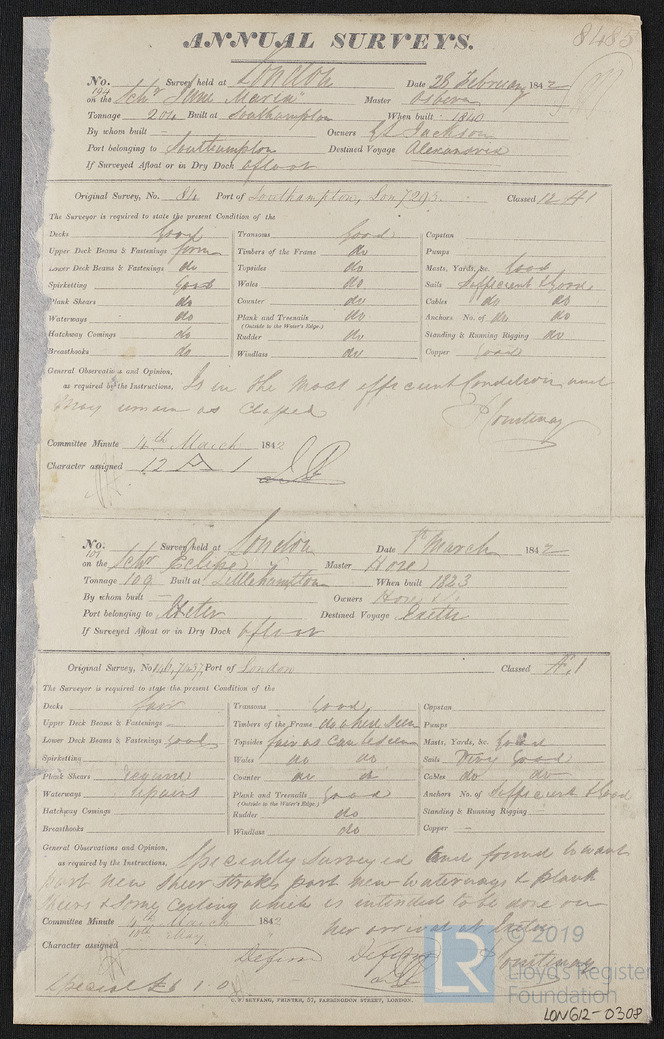 8485
ANNUAL SURVEYS.
No. 194 Survey held at London Date 28 February 1842
on the Schr "Jane Maria" Master Osborn
Tonnage 204 Built at Southampton When built 1840
By whom built — Owners Jackson
Port belonging to Southampton Destined Voyage Alexandria
If Surveyed Afloat or in Dry Dock afloat
Original Survey, No. 84 Port of Southampton, Lon 7295. Classed 12 A 1
The Surveyor is required to state the present Condition of the
Decks Good Transoms Good Capstan
Upper Deck Beams & Fastenings firm Timbers of the Frame do Pumps
Lower Deck Beams & Fastenings do Topsides do Masts, Yards, &c. Good
Spirketting Good Wales do Sails Sufficient & Good
Plank Shears do Counter do Cables do do
Waterways do Plank and Treenails do Anchors No. of do do
(Outside to the Water's Edge.)
Hatchway Comings do Rudder do Standing & Running Rigging do
Breasthooks do Windlass do Copper Good
General Observations and Opinion,
as required by the Instructions. Is in the most efficient Condition and
may remain as Classed
Courtenay
Committee Minute 4th March 1842
Character assigned 12 A 1
No. 101 Survey held at London Date 1st March 1842
on the Schr Eclipse Master Hore
Tonnage 109 Built at Littlehampton When built 1823
By whom built — Owners Hore
Port belonging to Exeter Destined Voyage Exeter
If Surveyed Afloat or in Dry Dock afloat
Original Survey, No 146,7457, Port of London Classed Æ 1
The Surveyor is required to state the present Condition of the
Decks fair Transoms Good Capstan
Upper Deck Beams & Fastenings — Timbers of the Frame do where seen Pumps
Lower Deck Beams & Fastenings Good Topsides fair as can be seen Masts, Yards, &c. Good
Spirketting Wales do do Sails Very Good
Plank Shears require Counter do do Cables do do
Waterways repairs Plank and Treenails Good Anchors No. of Sufficient & Good
(Outside to the Water's Edge.)
Hatchway Comings Rudder do Standing & Running Rigging —
Breasthooks Windlass do Copper —
General Observations and Opinion,
as required by the Instructions. Specially surveyed and found to want
part new sheer strakes part new waterways & plank
sheers & some ceiling which is intended to be done on
her arrival at Exeter
Committee Minute 4th March 1842
10th May
Character assigned Deferred Deferred Courtenay
Special £6 1.0
C. F. SEYFANG, PRINTER, 57, FARRINGDON STREET, LONDON.
LR © 2019
Lloyd's Register
Foundation
LON612-0308